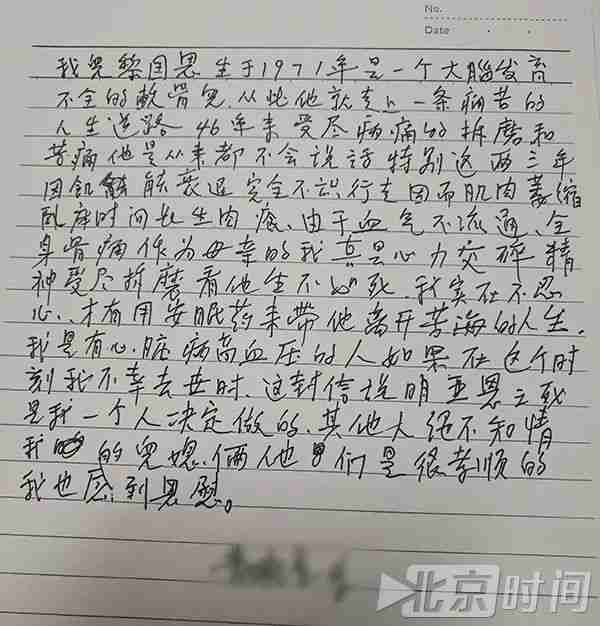 No.
Date
我兒黎因恩生于1971年是一个大腦发育
不全的軟骨兒.从此他就走上一条痛苦的
人生道路46年来受尽病痛的折磨和
苦痛他是从来都不会说話特别这两三年
因飢能衰退完全不能行走因而肌肉萎缩
臥床时间长生肉瘡、由于血气不流通、全
身骨痛作为母亲的我真是心力交碎精
神受尽折磨看他生不如死.我实在不忍
心、才有用安眠药来带他离开苦海的人生.
我是有心脏病高血压的人如果在这个时
刻我不幸去世时.这封信说明亚恩之死
是我一个人决定做的、其他人绝不知情
我的兒媳、倆他们是很孝順的
我也感到恩慰。
北京时间